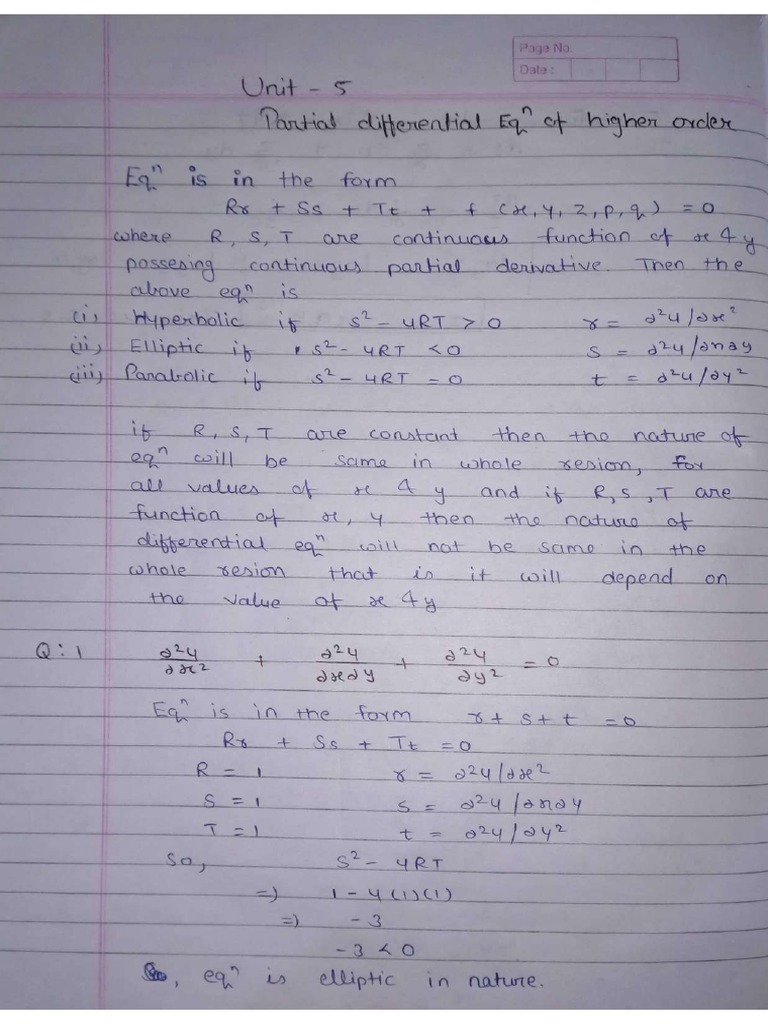 Page No.
Date :
Unit - 5
Partial differential Eqⁿ of higher order
Eqⁿ is in the form
Rr + Ss + Tt + f (x, y, z, p, q) = 0
where R, S, T are continuous function of x & y
possesing continuous partial derivative. Then the
above eqⁿ is
(i) Hyperbolic if s² - 4RT > 0 r = ∂²u/∂x²
(ii) Elliptic if s² - 4RT < 0 s = ∂²u/∂x∂y
(iii) Parabolic if s² - 4RT = 0 t = ∂²u/∂y²
if R, S, T are constant then the nature of
eqⁿ will be same in whole resion, for
all values of x & y and if R, S, T are
function of x, y then the nature of
differential eqⁿ will not be same in the
whole resion that is it will depend on
the value of x & y
Q:1 ∂²u/∂x² + ∂²u/∂x∂y + ∂²u/∂y² = 0
Eqⁿ is in the form r + s + t = 0
Rr + Ss + Tt = 0
R = 1 r = ∂²u/∂x²
S = 1 s = ∂²u/∂x∂y
T = 1 t = ∂²u/∂y²
So, s² - 4RT
=) 1 - 4(1)(1)
=) - 3
- 3 < 0
So, eqⁿ is elliptic in nature.